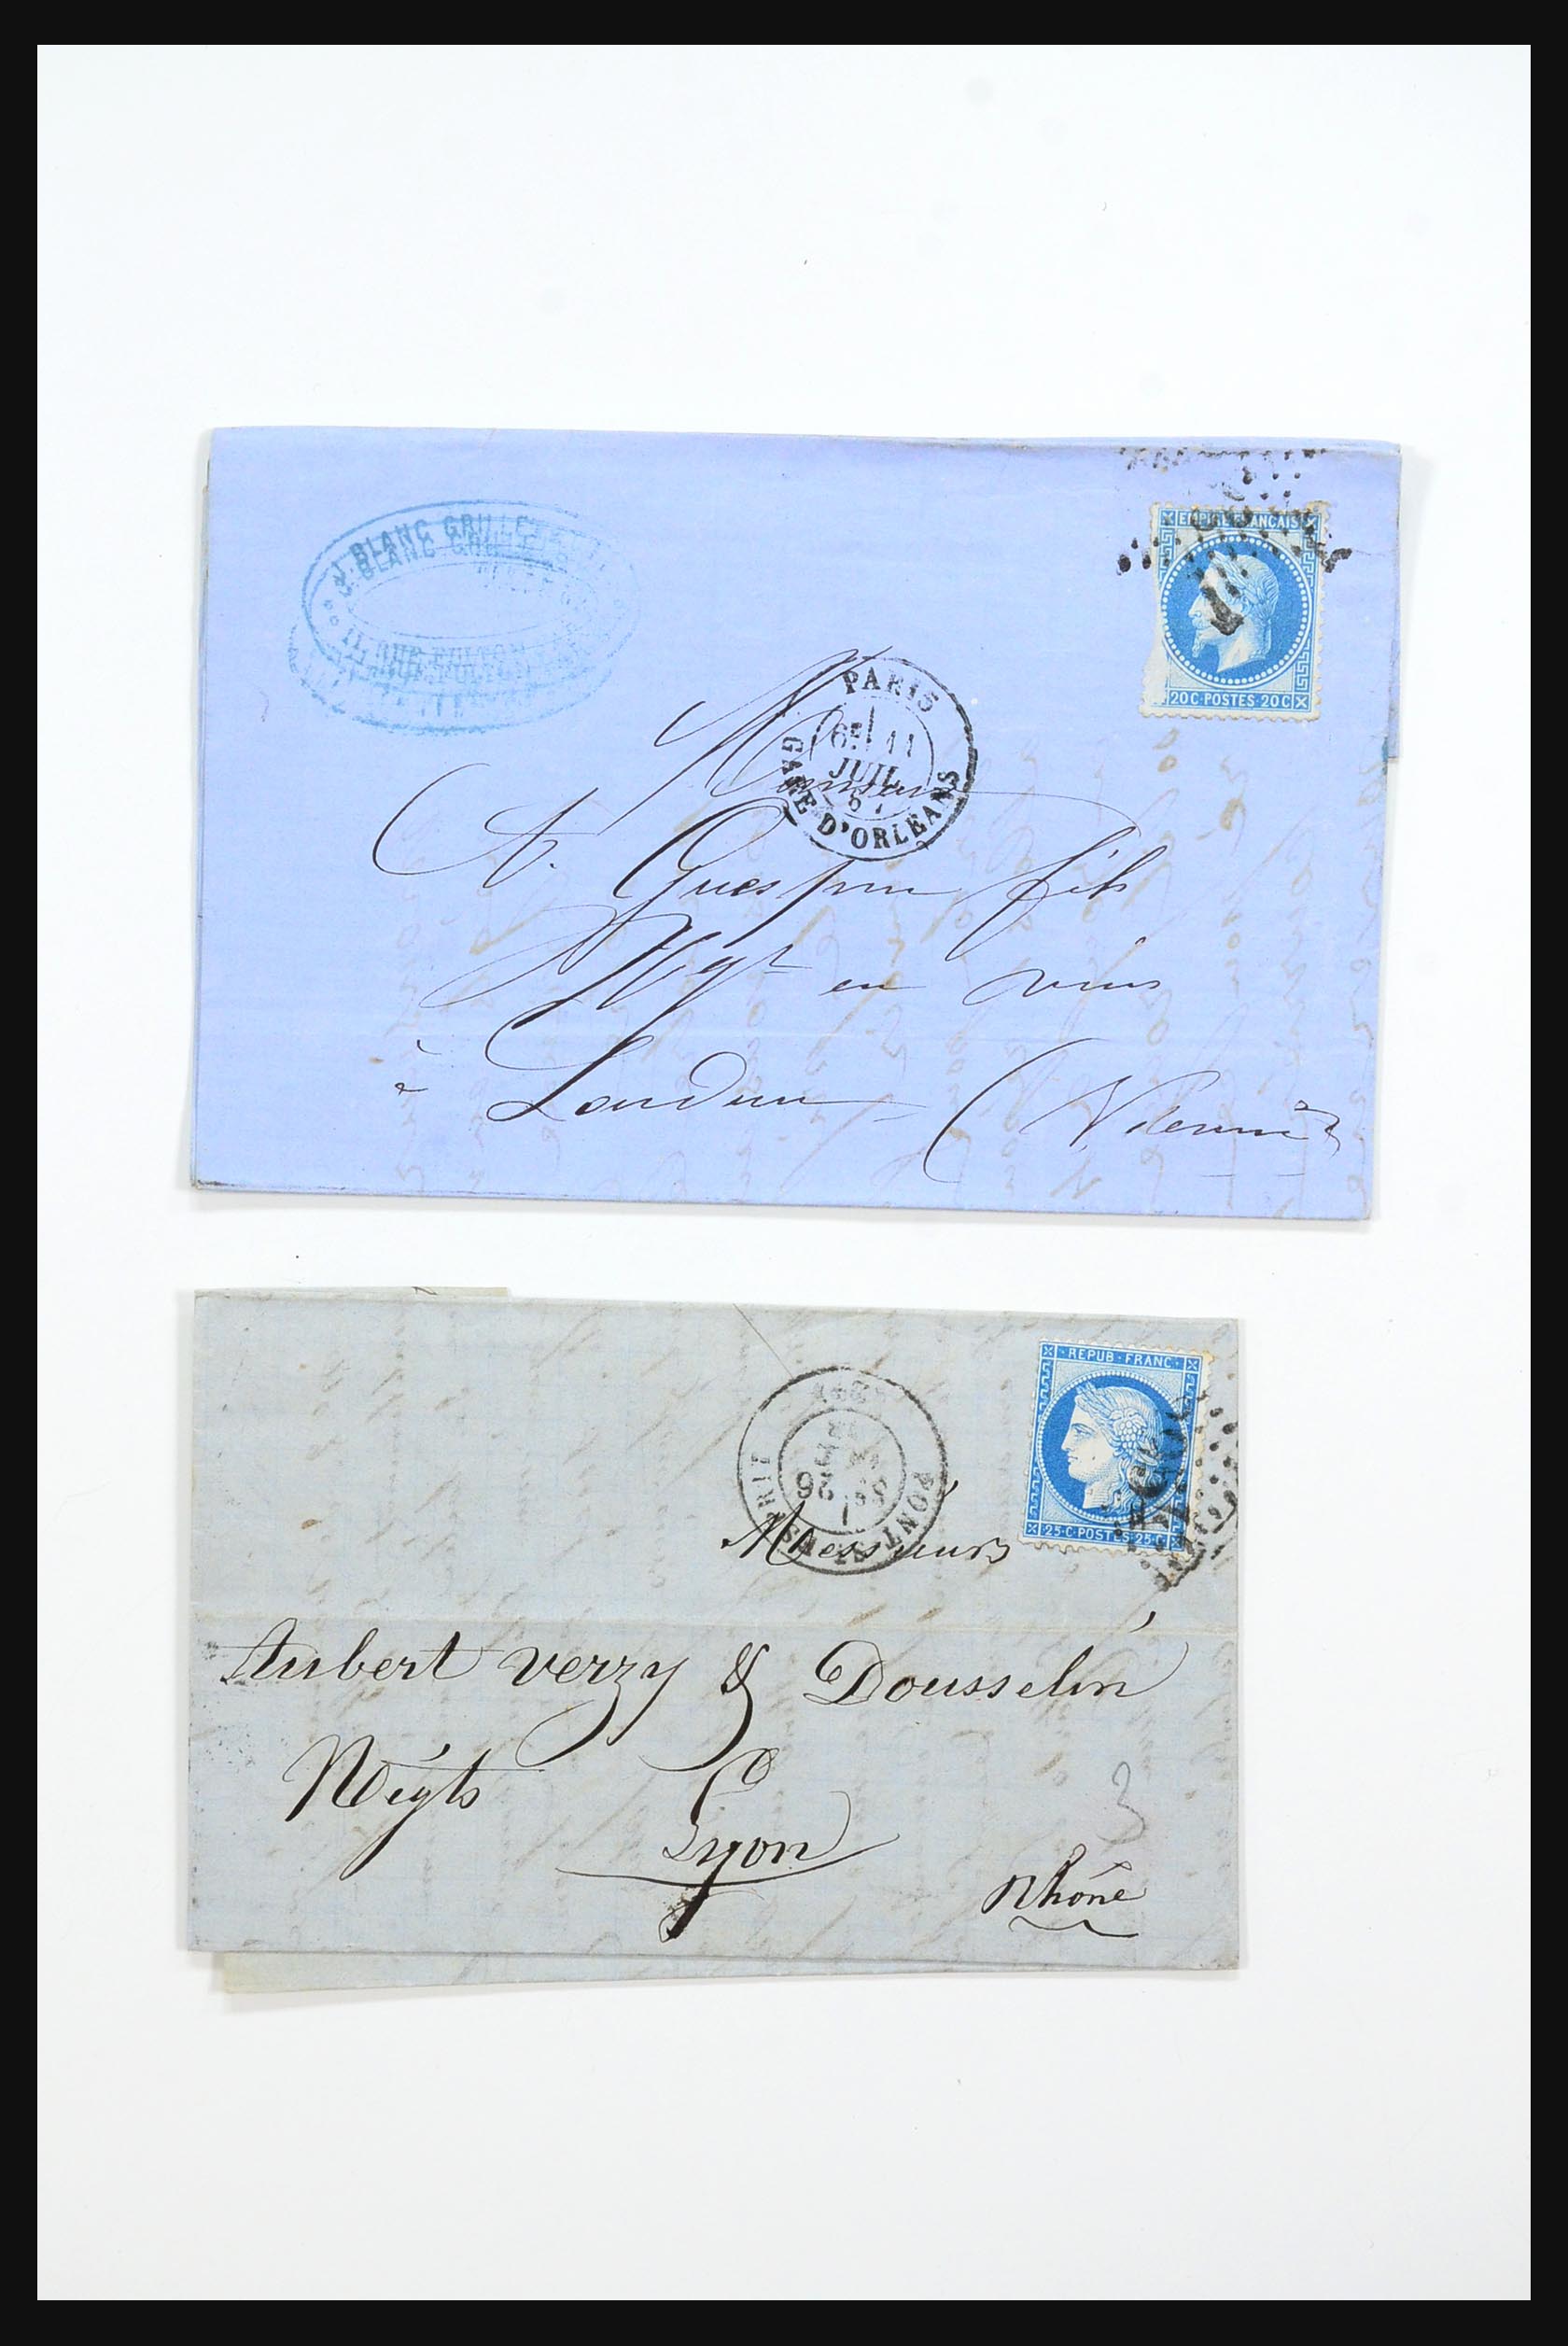 J. BLANC GRILLE
11, RUE FULTON
EMPIRE FRANÇAIS
20 C · POSTES · 20 C
PARIS
6E 11
JUIL
67
GARE D'ORLEANS
Monsieur
A. Guespin fils
Ngt en vins
à Loudun (Vienne)
· REPUB · FRANC ·
25 · C · POSTES · 25 · C
PONT-ST-ESPRIT
26
Messieurs
Aubert Verzy & Dousselin
Négts
Lyon
Rhône
3